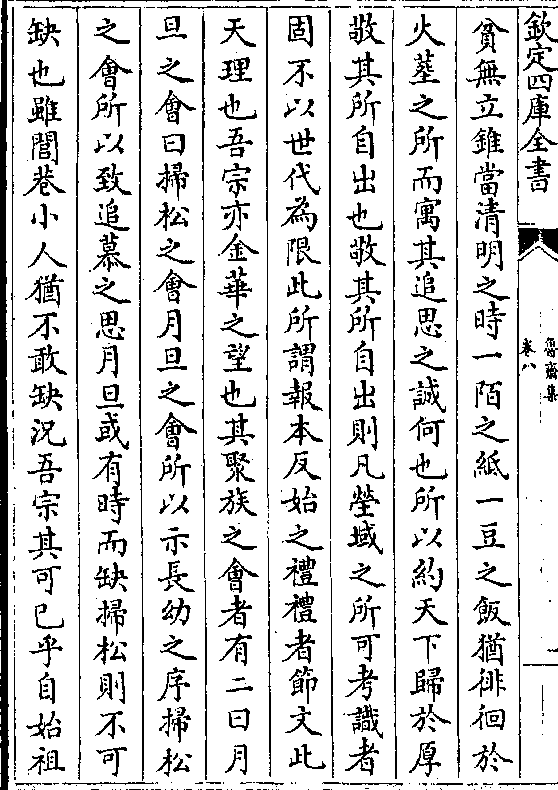 欽定四庫全書
魯齋集
卷八
貧無立錐當清明之時一陌之紙一豆之飯猶徘徊於
火墓之所而寓其追思之誠何也所以約天下歸於厚
敬其所自出也敬其所自出則凡塋域之所可考識者
固不以世代為限此所謂報本反始之禮禮者節文此
天理也吾宗亦金華之望也其聚族之會者有二曰月
旦之會曰掃松之會月旦之會所以示長幼之序掃松
之會所以致追慕之思月旦或有時而缺掃松則不可
缺也雖閭巷小人猶不敢缺況吾宗其可已乎自始祖